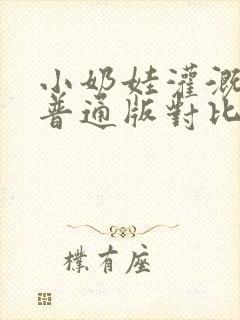 小奶娃灌溉
普通版對比
樸有座